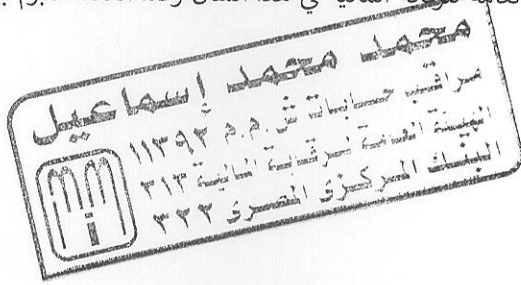 المالية في هذا
محمد محمد إسماعيل
مراقب حسابات ش.م.م ١١٣٩٢
الهيئة العامة لرقابة المالية ٣١٣
البنك المركزى المصرى ٣٢٢